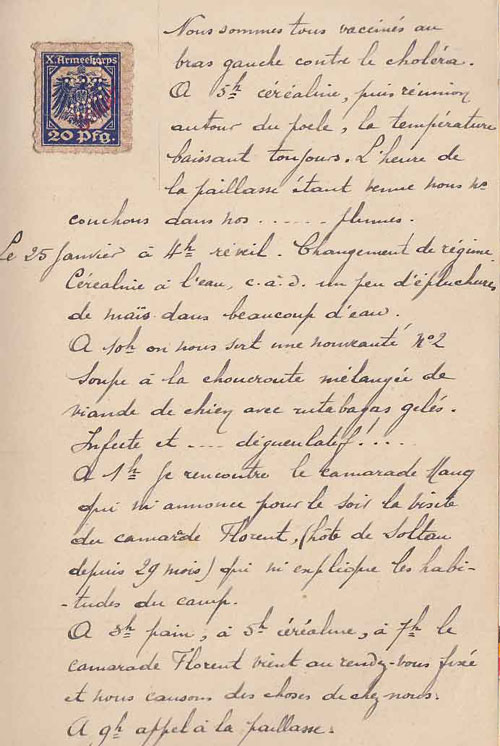 X. Armeekorps
20 Pfg.
Nous sommes tous vaccinés au
bras gauche contre le choléra.
A 5h céréaline, puis réunion
autour du poele, la température
baissant toujours. L'heure de
la paillasse étant venue nous
couchons dans nos ..... plumes.
Le 25 Janvier à 4h réveil. Changement de régime.
Céréaline à l'eau, c.à.d. un peu d'épluchures
de maïs dans beaucoup d'eau.
A 10h on nous sert une nouveauté No 2
Soupe à la choucroute mélangée de
viande de chien avec rutabagas gelés.
Infecte et .... dégueulatif!....
A 1h Je rencontre le camarade
qui m'annonce pour le soir la visite
du camarade Florent, (hôte de Soltau
depuis 29 mois) qui m'explique les habi-
-tudes du camp.
A 3h pain, à 5h céréaline, à 7h le
camarade Florent vient au rendez-vous fixé
et nous causons des choses de chez nous.
A 9h appel à la paillasse.